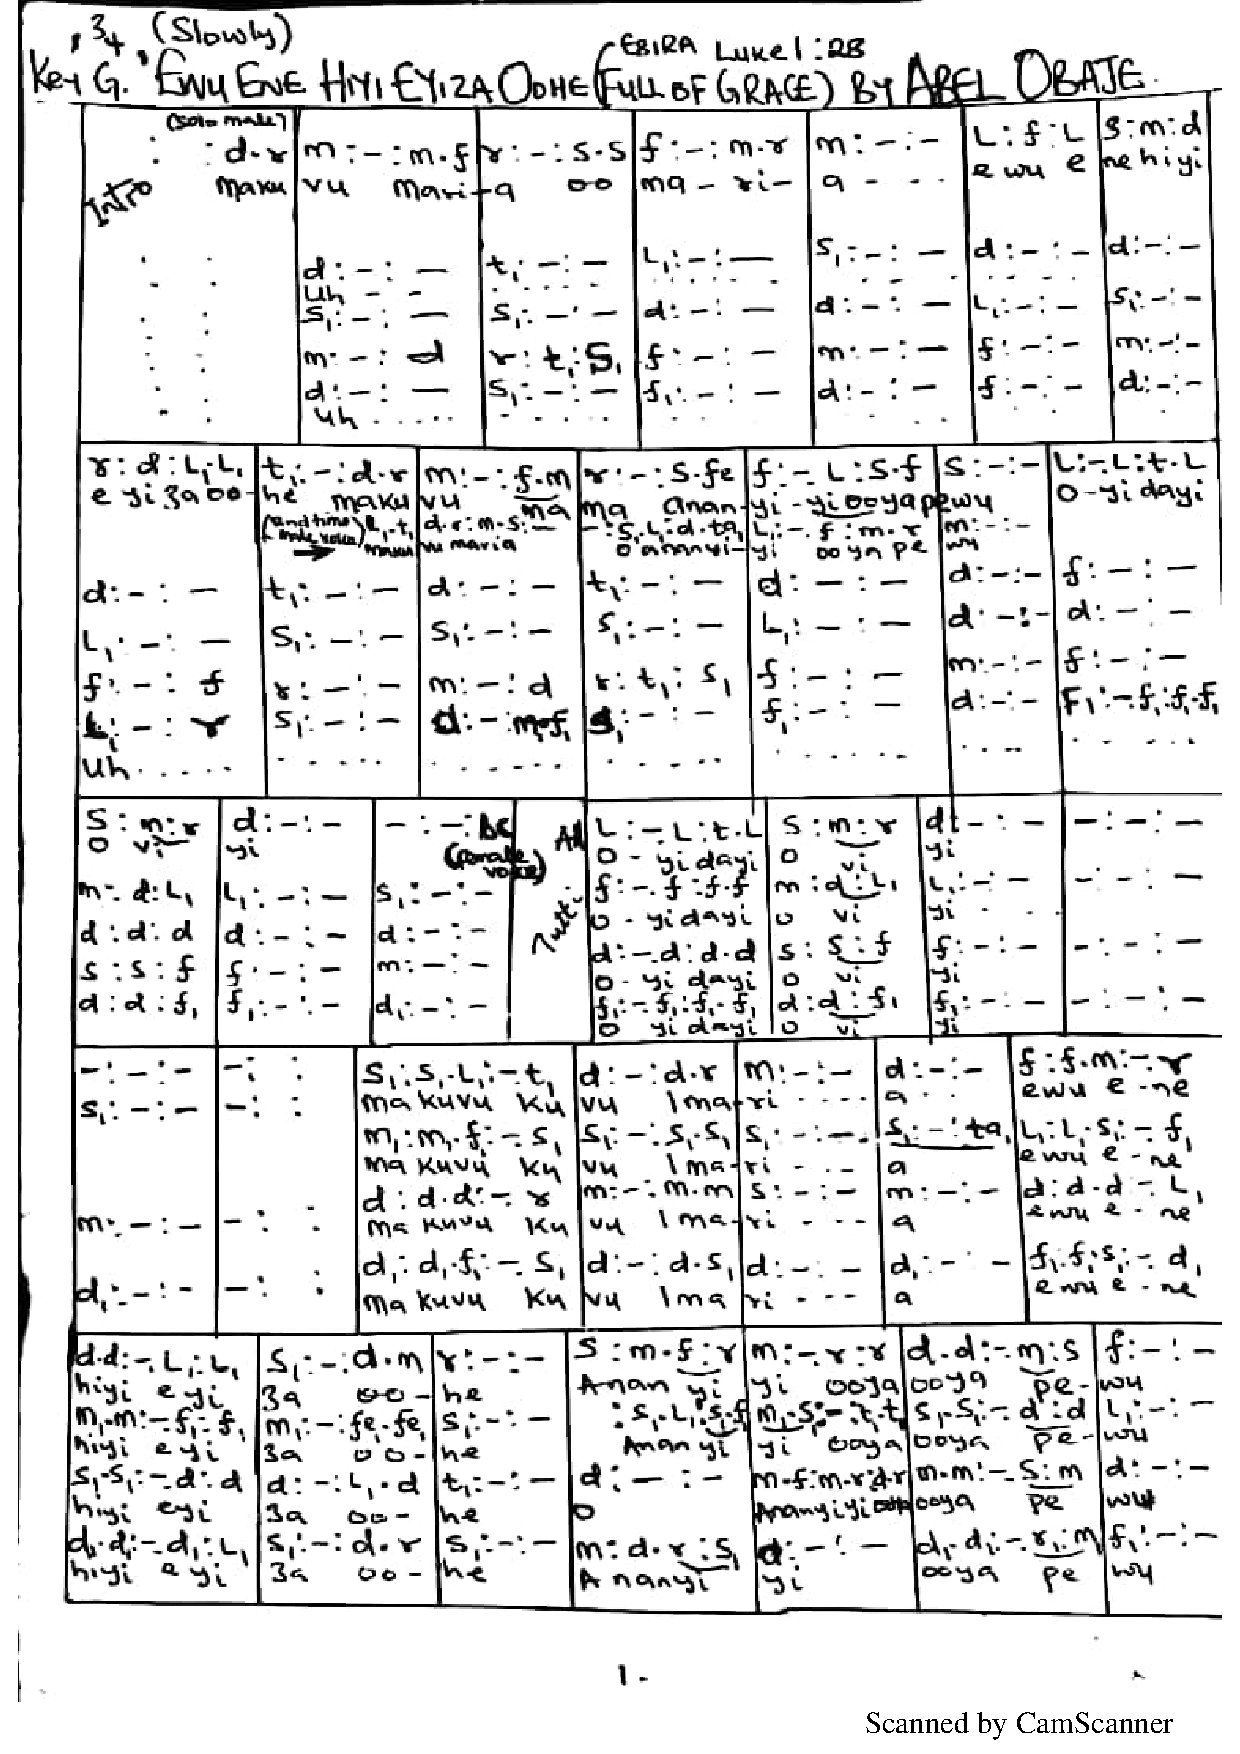 , 3/4 (Slowly)
EBIRA Luke 1:28
Key G. EWU ENE HIYI EYIZA OOHE (FULL OF GRACE) BY ABEL OBAJE.
(Solo male)
Intro : : d.r | m:-:m.f | r:-:s.s | f:-:m.r | m:-:- | L:f:L | s:m:d
maku | vu mari-a oo | ma-ri- | a - - - | ewu e | ne hiyi
: : | d:-:- | t₁:-:- | L₁:-:- | s₁:-:- | d:-:- | d:-:-
Uh - -
: : | s₁:-:- | s₁:-:- | d:-:- | d:-:- | L₁:-:- | s₁:-:-
: : | m:-:d | r:t₁:s₁ | f:-:- | m:-:- | f:-:- | m:-:-
: : | d:-:- | s₁:-:- | f₁:-:- | d:-:- | f:-:- | d:-:-
Uh . . . . .
r:d:L₁.L₁ | t₁:-:d.r | m:-:f.m | r:-:s.fe | f:-.L:s.f | s:-:- | L:-.L:t.L
e yi3a oo-he maku | vu ma | ma Anan-yi-yi ooyapewu | O-yidayi
(2nd time male voice) L₁.t₁ | d.r:m.s:- | -:s₁.L₁:d.ta₁ | L₁:-.f:m.r | m:-:-
maku | vu maria | o ananyi-yi ooya pe | wu
d:-:- | t₁:-:- | d:-:- | t₁:-:- | d:-:- | d:-:- | f:-:-
L₁:-:- | s₁:-:- | s₁:-:- | s₁:-:- | L₁:-:- | d:-:- | d:-:-
f:-:f | r:-:- | m:-:d | r:t₁:s₁ | f:-:- | m:-:- | f:-:-
L₁:-:r | s₁:-:- | d:-:m.f₁ | s₁:-:- | f₁:-:- | d:-:- | F₁:-.f₁:f₁.f₁
Uh . . . . .
s:m:r | d:-:- | -:-:DC | All | L:-.L:t.L | s:m:r | d:-:- | -:-:-
O vi | yi | (female voice) | Tutti | O-yidayi | O vi | yi
m:d:L₁ | L₁:-:- | s₁:-:- | f:-.f:f.f | m:d:L₁ | L₁:-:- | -:-:-
O-yidayi | O vi | yi
d:d:d | d:-:- | d:-:- | d:-.d:d.d | s:s:f | f:-:- | -:-:-
O-yi dayi | O vi | yi
s:s:f | f:-:- | m:-:-
d:d:f₁ | f₁:-:- | d₁:-:- | f₁:-.f₁:f₁.f₁ | d:d:f₁ | f₁:-:- | -:-:-
O yi dayi | O vi | yi
-:-:- | -: : | s₁:s₁.L₁:-.t₁ | d:-:d.r | m:-:- | d:-:- | f:f.m:-.r
ma kuvu ku | vu Ima-ri - - - - | a - - | ewu e-ne
s₁:-:- | -: : | m₁:m₁.f₁:-.s₁ | s₁:-:s₁.s₁ | s₁:-:- | s₁:-:ta₁ | L₁:L₁.s₁:-.f₁
ma kuvu ku | vu Ima-ri - - - | a | ewu e-ne
m:-:- | -: : | d:d.d:-.r | m:-:m.m | s:-:- | m:-:- | d:d.d:-.L₁
ma kuvu ku | vu Ima-ri - - - | a | ewu e-ne
d₁:-:- | -: : | d₁:d₁.f₁:-.s₁ | d:-:d.s₁ | d:-:- | d₁:-:- | f₁.f₁:s₁:-.d₁
ma kuvu ku | vu Ima | ri - - - | a | ewu e-ne
d.d:-.L₁:L₁ | s₁:-:d.m | r:-:- | s:m.f:r | m:-.r:r | d.d:-.m:s | f:-:-
hiyi e yi | 3a oo-he | Anan yi | yi ooya | ooya pe-wu
m₁.m₁:-.f₁:f₁ | m₁:-:fe₁.fe₁ | s₁:-:- | :s₁.L₁:s₁.f₁ | m₁.s₁:-.t₁:t₁ | s₁.s₁:-.d:d | L₁:-:-
hiyi e yi | 3a oo-he | Ananyi | yi ooya | ooya pe-wu
s₁.s₁:-.d:d | d:-:L₁.d | t₁:-:- | d:-:- | m.f:m.r:d.r | m.m:-.s:m | d:-:-
hiyi eyi | 3a oo-he | O | Ananyiyi ooya | ooya pe | wu
d₁.d₁:-.d₁:L₁ | s₁:-:d.r | s₁:-:- | m:d.r:s₁ | d:-:- | d₁.d₁:-.r₁:m₁ | f₁:-:-
hiyi e yi | 3a oo-he | Ananyi | yi | ooya pe | wu
1 -
Scanned by CamScanner